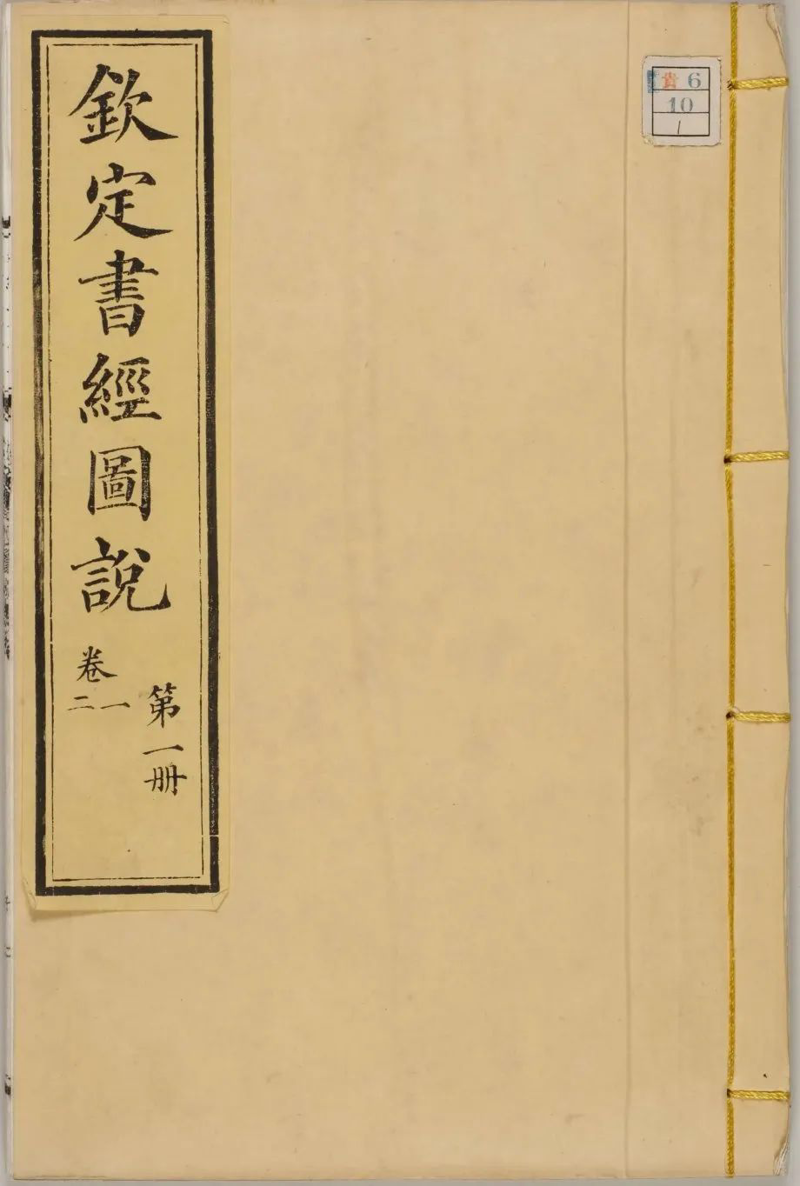 欽定書經圖說
卷一二
第一冊
貴 6
10
1